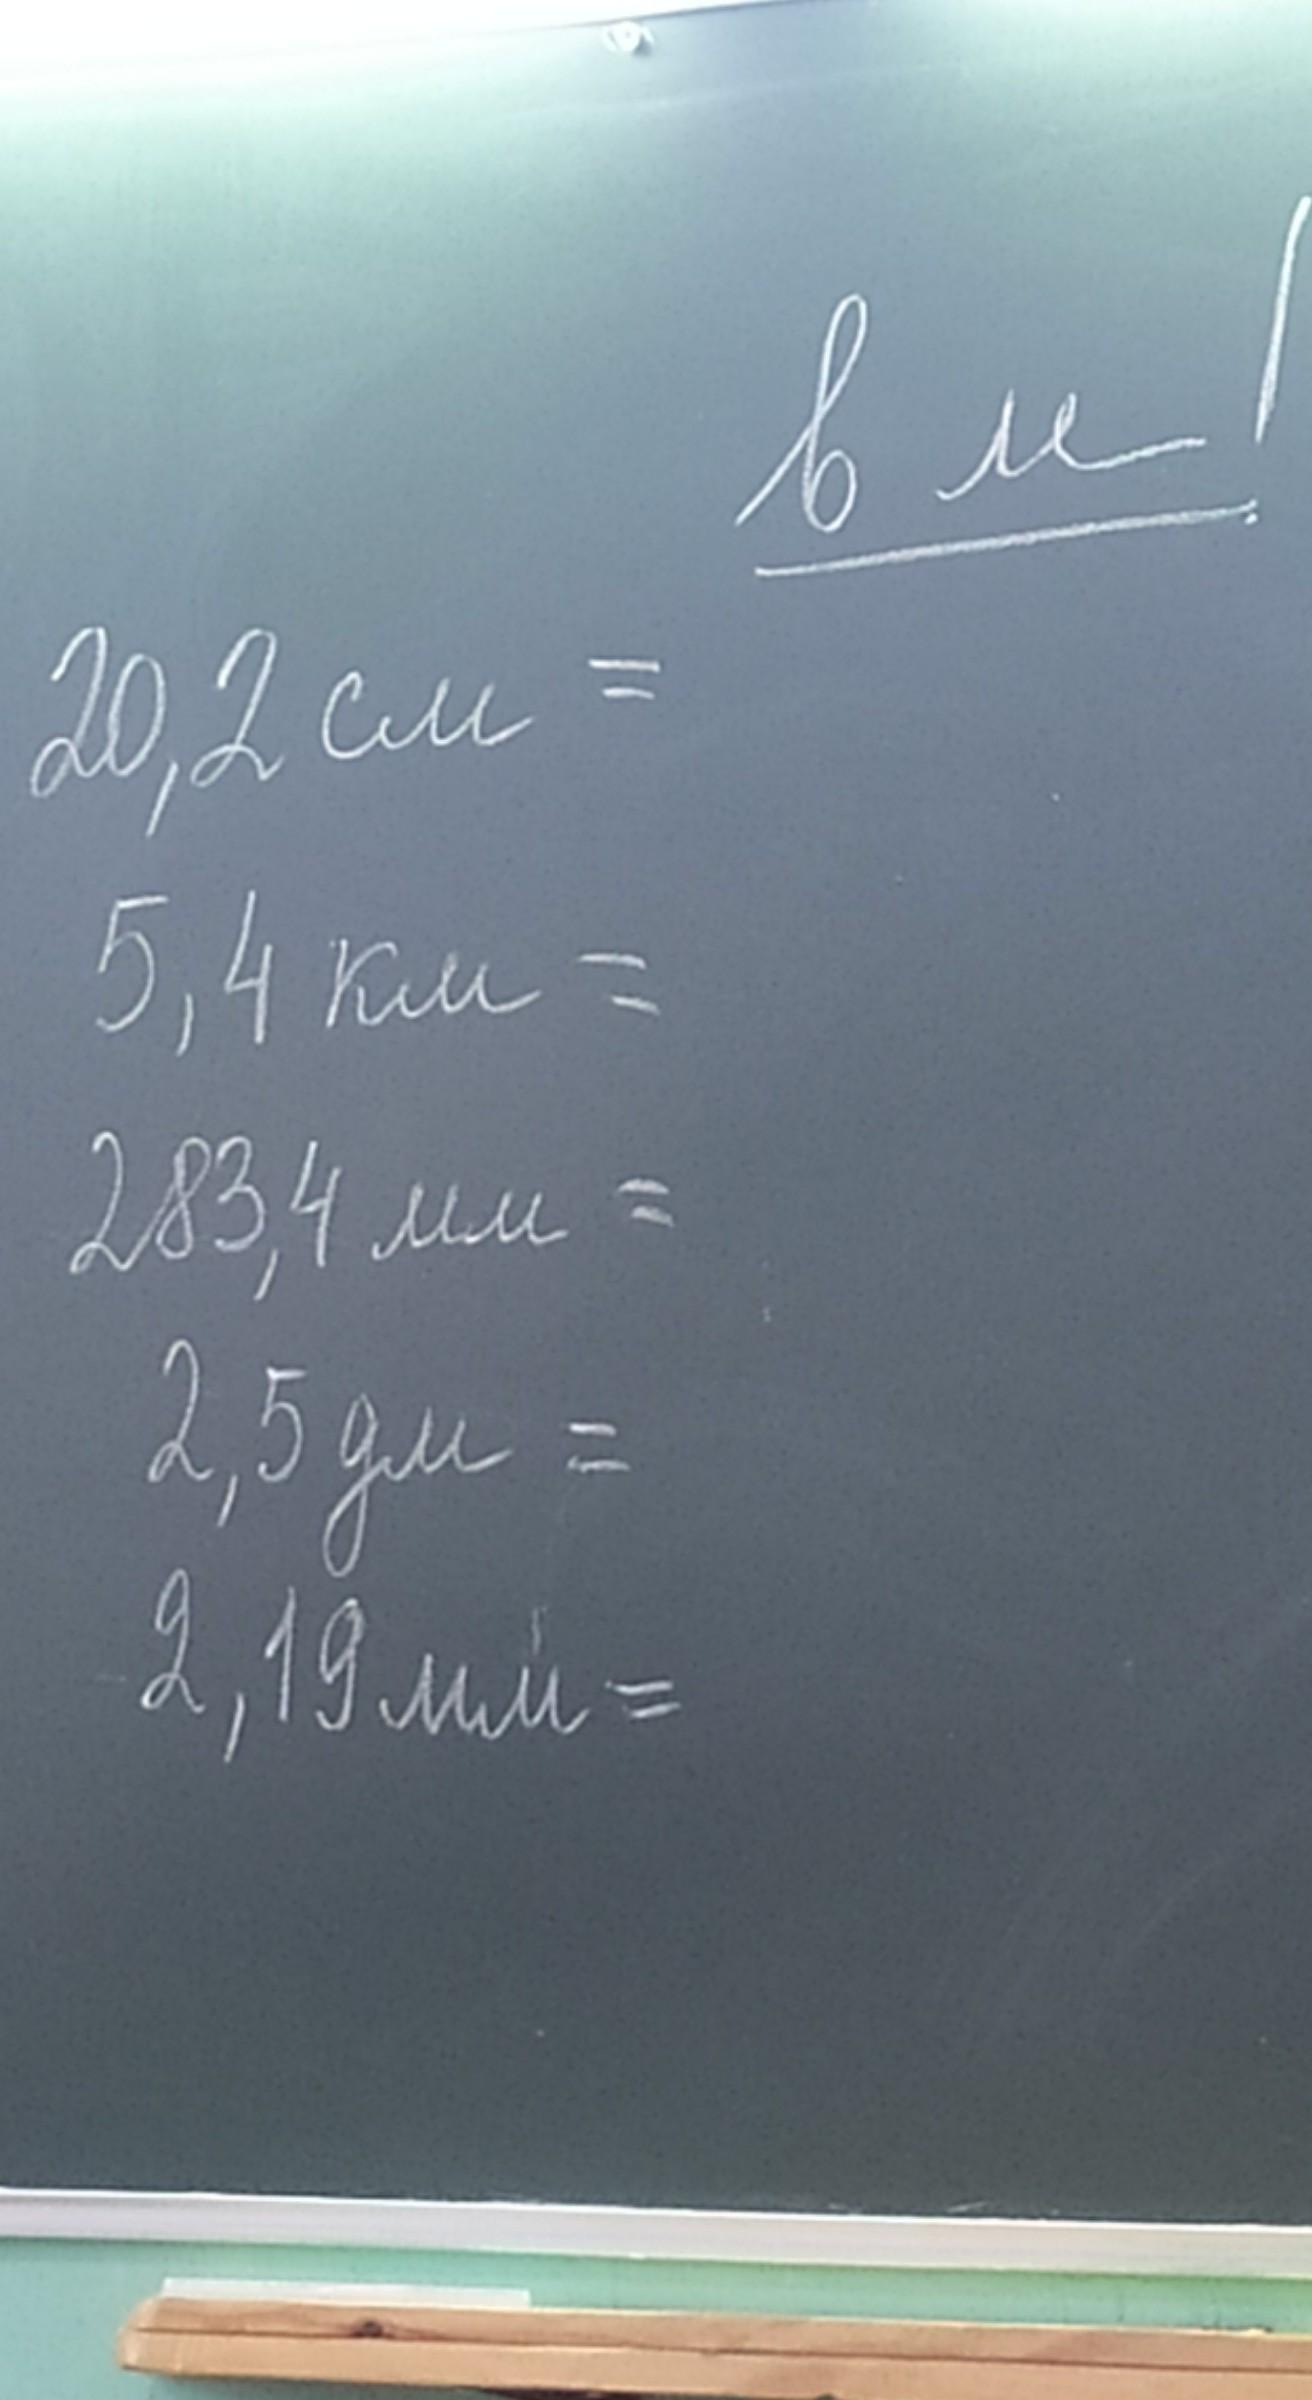 в м!
20,2 см =
5,4 км =
283,4 мм =
2,5 дм =
2,19 мм =